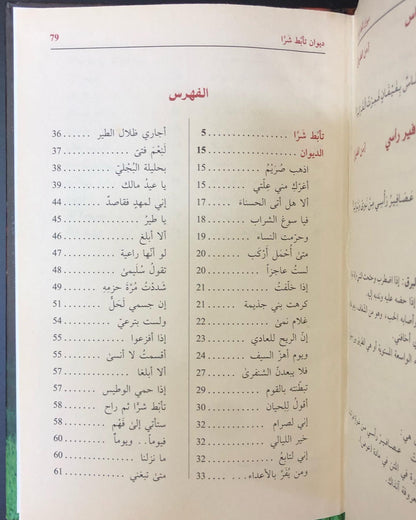 ديوان تأبّط شرًا
79
الفهرس
تأبّط شرًا ..... 5
الديوان ..... 15
اذهب صُرَيْمُ ..... 15
أغرّكِ مني علّتي ..... 15
ألا هل أتى الحسناءَ ..... 17
فيا سوغ الشراب ..... 18
وحرّمت النساءَ ..... 19
متى أحمل أركب ..... 20
لستُ عاجزاً ..... 20
إذا خلّفتُ ..... 21
كرهت بني جذيمة ..... 21
غلام نمى ..... 22
إنّ الريح للعادي ..... 23
ويوم أهز السيف ..... 24
فلا يبعدنّ الشنفرى ..... 27
تبطّنته بالقوم ..... 29
أقولُ للحيان ..... 30
إني لصرام ..... 32
خير الليالي ..... 32
إني لتابعٌ ..... 32
ومن يُغرَّ بالأعداء ..... 33
أجاري ظلال الطير ..... 36
لَنِعْمَ فتى ..... 37
بحليلة البُجْليّ ..... 38
يا عيدُ مالك ..... 39
إني لمهدٍ فقاصدٌ ..... 44
يا طيرُ ..... 45
ألا أبلغ ..... 46
لو أنّها راعية ..... 47
تقولُ سُليمى ..... 48
شددتُ مُرّة حزمِه ..... 49
إن جسمي لَخَلُّ ..... 51
ولست بترعيّ ..... 54
إذا أفزعوا ..... 55
أقسمتُ لا أنسى ..... 56
ألا أبلغا ..... 57
إذا حمي الوطيس ..... 57
تأبّط شرًا ثم راح ..... 57
ستأتي إلى فَهْم ..... 58
فيوماً.. ويوماً ..... 60
ما نزلنا ..... 60
متى تبغني ..... 61